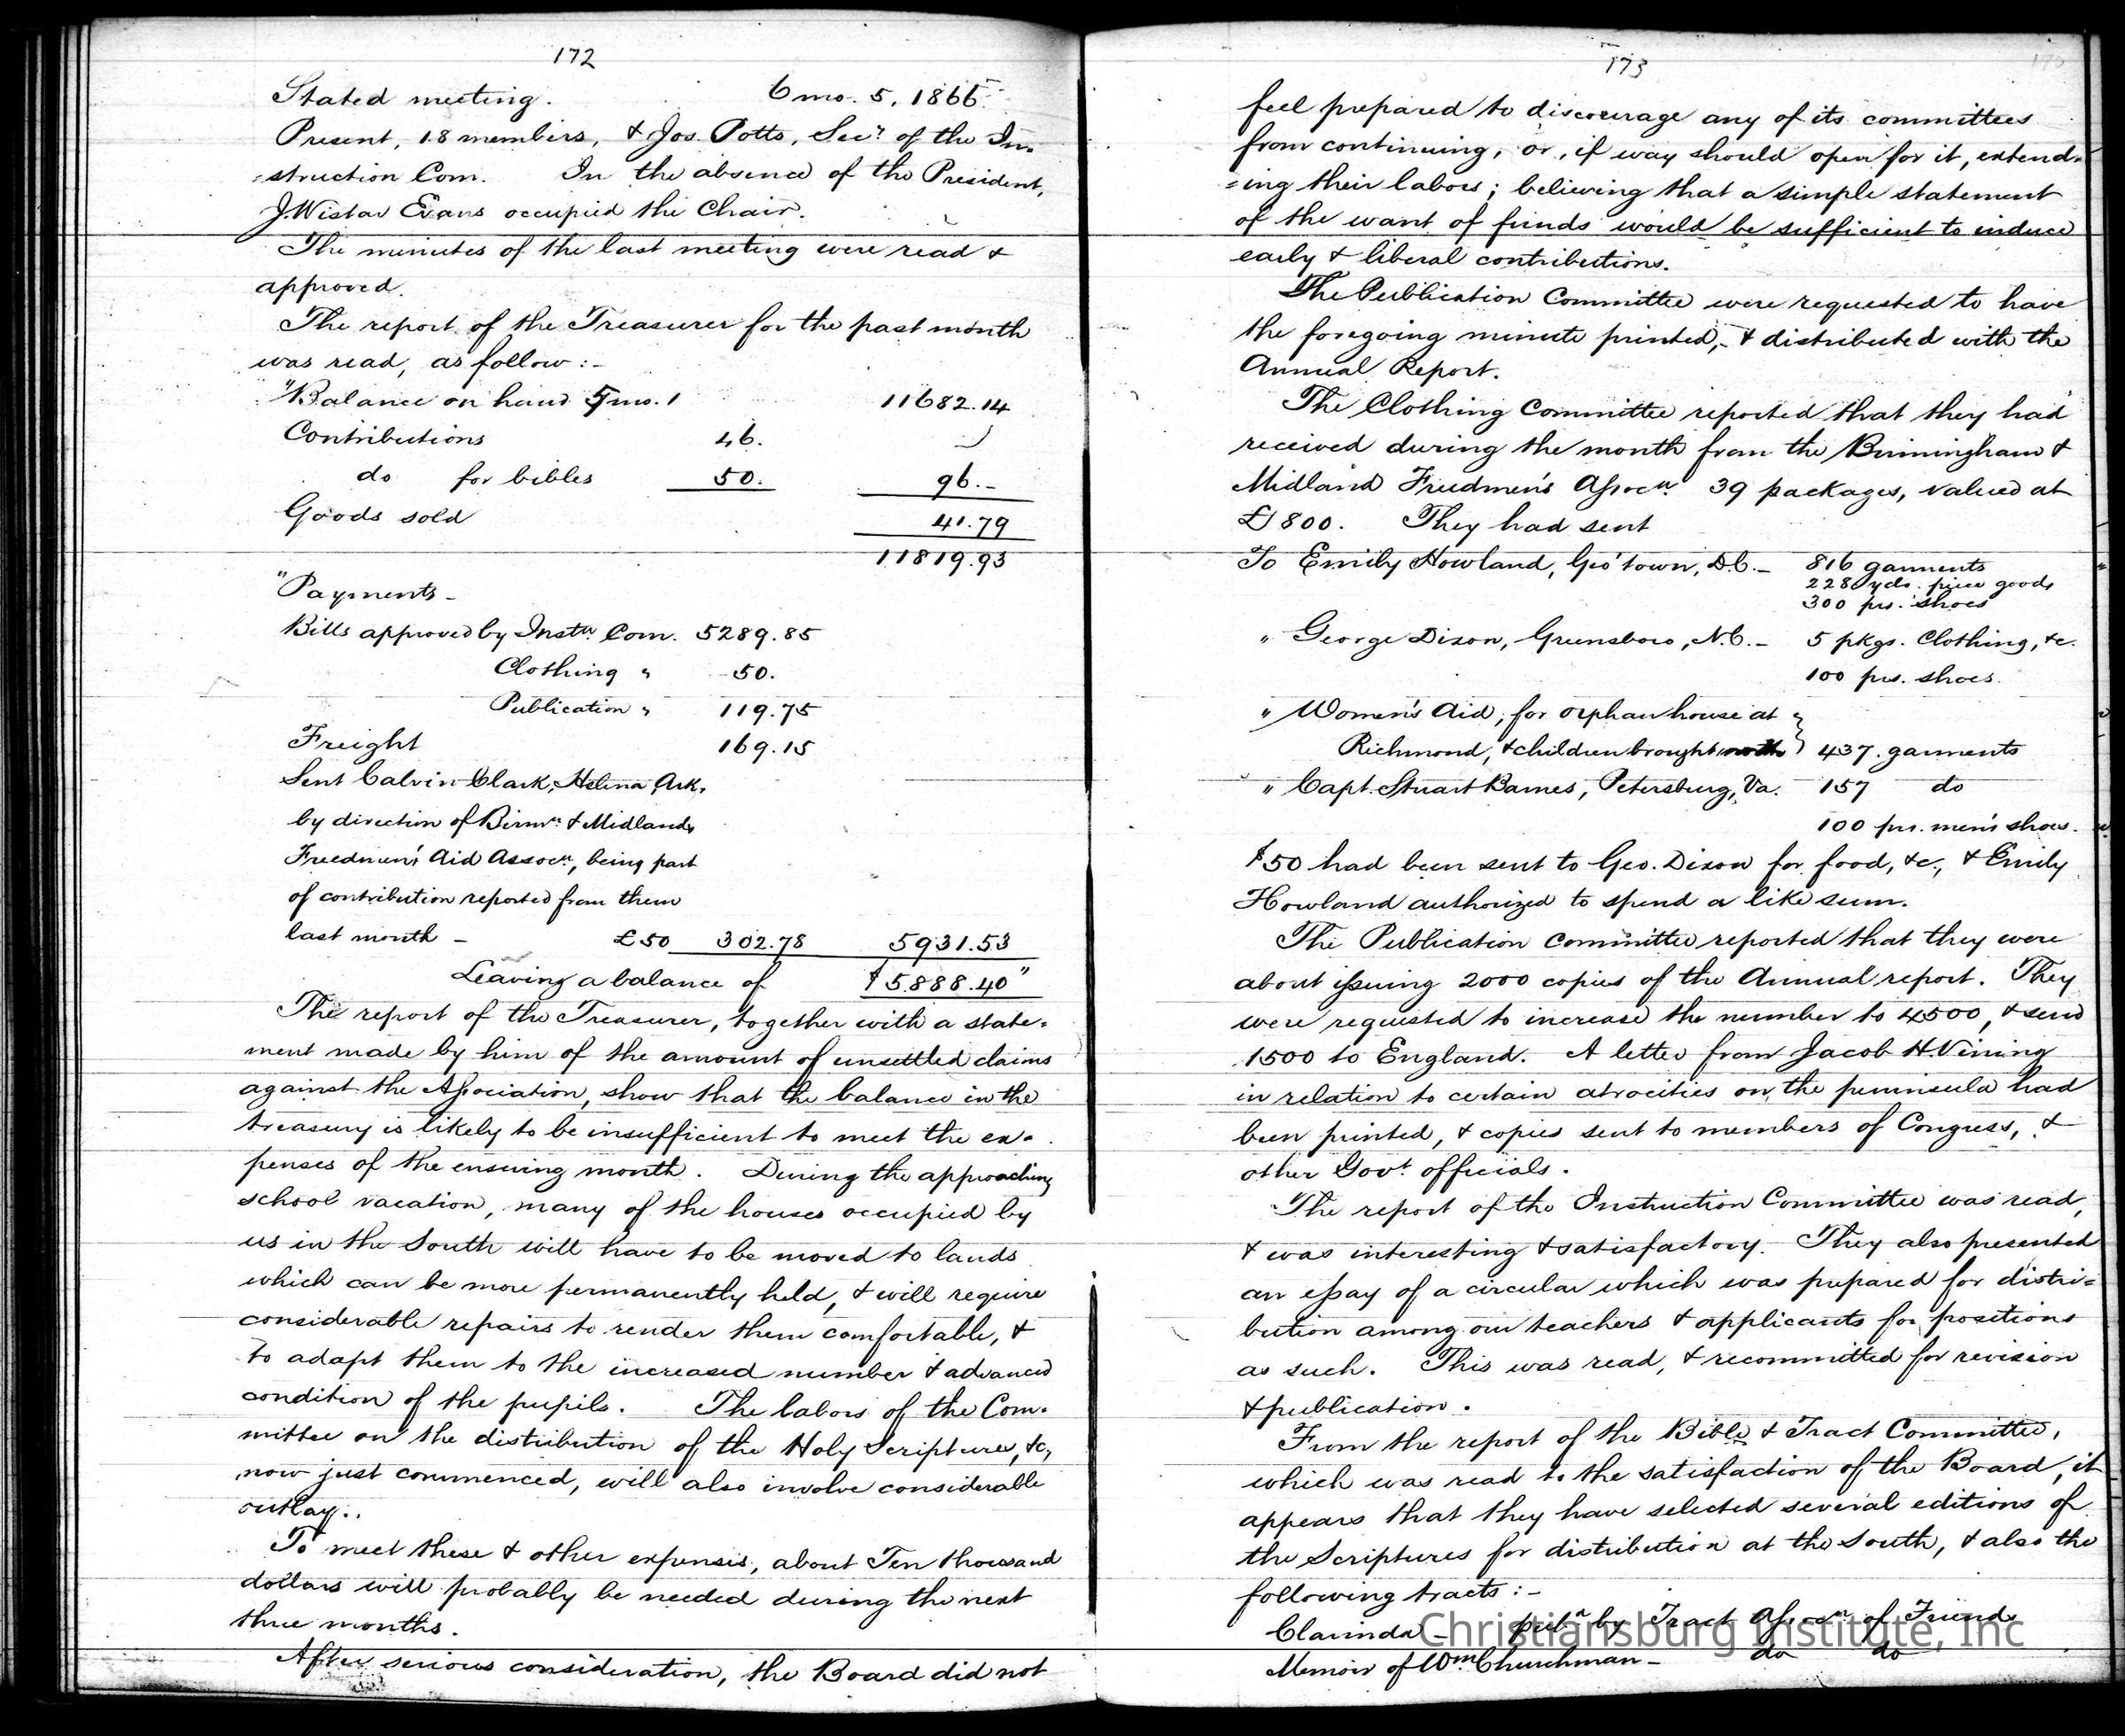 172
Stated meeting. 6 mo. 5, 1866.
Present, 18 members, & Jos. Potts, Secy of the In-
=struction Com. In the absence of the President,
J. Wistar Evans occupied the Chair.
The minutes of the last meeting were read &
approved.
The report of the Treasurer for the past month
was read, as follow:-
"Balance on hand 5 mo. 1 11682.14
Contributions 46.
do for bibles 50. 96.-
Goods sold 41.79
11819.93
"Payments-
Bills approved by Instn Com. 5289.85
Clothing " 50.
Publication " 119.75
Freight 169.15
Sent Calvin Clark, Helena, Ark,
by direction of Birmm & Midland
Freedmen's Aid Assocn, being part
of contribution reported from them
last month - £50 302.78 5931.53
Leaving a balance of $5.888.40"
The report of the Treasurer, together with a state-
ment made by him of the amount of unsettled claims
against the Association, show that the balance in the
treasury is likely to be insufficient to meet the ex-
penses of the ensuing month. During the approaching
school vacation, many of the houses occupied by
us in the South will have to be moved to lands
which can be more permanently held, & will require
considerable repairs to render them comfortable, &
to adapt them to the increased number & advanced
condition of the pupils. The labors of the Com-
mittee on the distribution of the Holy Scriptures, &c,
now just commenced, will also involve considerable
outlay.
To meet these & other expenses, about Ten thousand
dollars will probably be needed during the next
three months.
After serious consideration, the Board did not
173
feel prepared to discourage any of its committees
from continuing, or, if way should open for it, extend-
=ing their labors; believing that a simple statement
of the want of funds would be sufficient to induce
early & liberal contributions.
The Publication Committee were requested to have
the foregoing minute printed, & distributed with the
Annual Report.
The Clothing Committee reported that they had
received during the month from the Birmingham &
Midland Freedmen's Assocn 39 packages, valued at
£1800. They had sent
To Emily Howland, Geo'town, D.C.- 816 garments
228 yds. piece goods
300 prs. shoes
" George Dixon, Greensboro, N.C.- 5 pkgs. Clothing, &c.
100 prs. shoes.
" Women's Aid, for orphan house at
Richmond, & children brought north } 437 garments
" Capt. Stuart Barnes, Petersburg, Va. 157 do
100 prs. men's shoes.
$50 had been sent to Geo. Dixon for food, &c, & Emily
Howland authorized to spend a like sum.
The Publication Committee reported that they were
about issuing 2000 copies of the Annual report. They
were requested to increase the number to 4500, & send
1500 to England. A letter from Jacob H. Vining
in relation to certain atrocities on the peninsula had
been printed, & copies sent to members of Congress, &
other Govt officials.
The report of the Instruction Committee was read,
& was interesting & satisfactory. They also presented
an essay of a circular which was prepared for distri=
bution among our teachers & applicants for positions
as such. This was read, & recommitted for revision
& publication.
From the report of the Bible & Tract Committee,
which was read to the satisfaction of the Board, it
appears that they have selected several editions of
the Scriptures for distribution at the South, & also the
following tracts:-
Clarinda - pubd by Tract Assocn of Friends
Memoir of Wm Churchman - do do
Christiansburg Institute, Inc